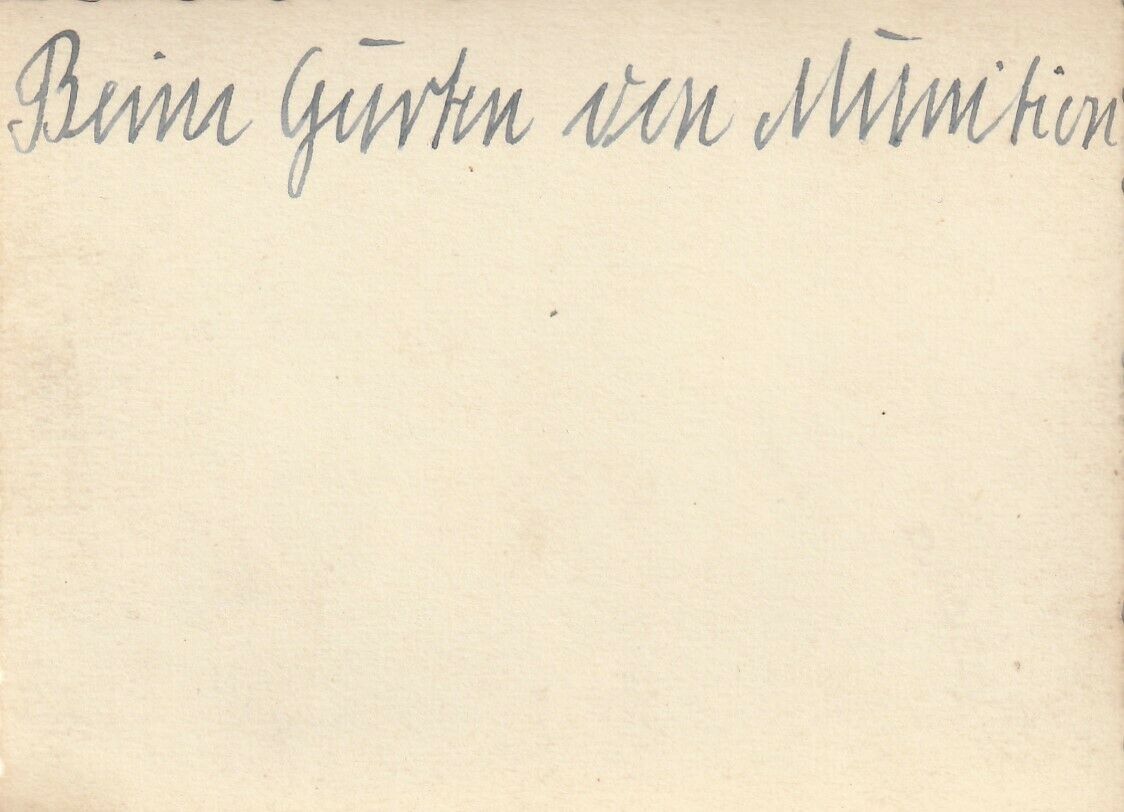 Beim Gurten von Munition